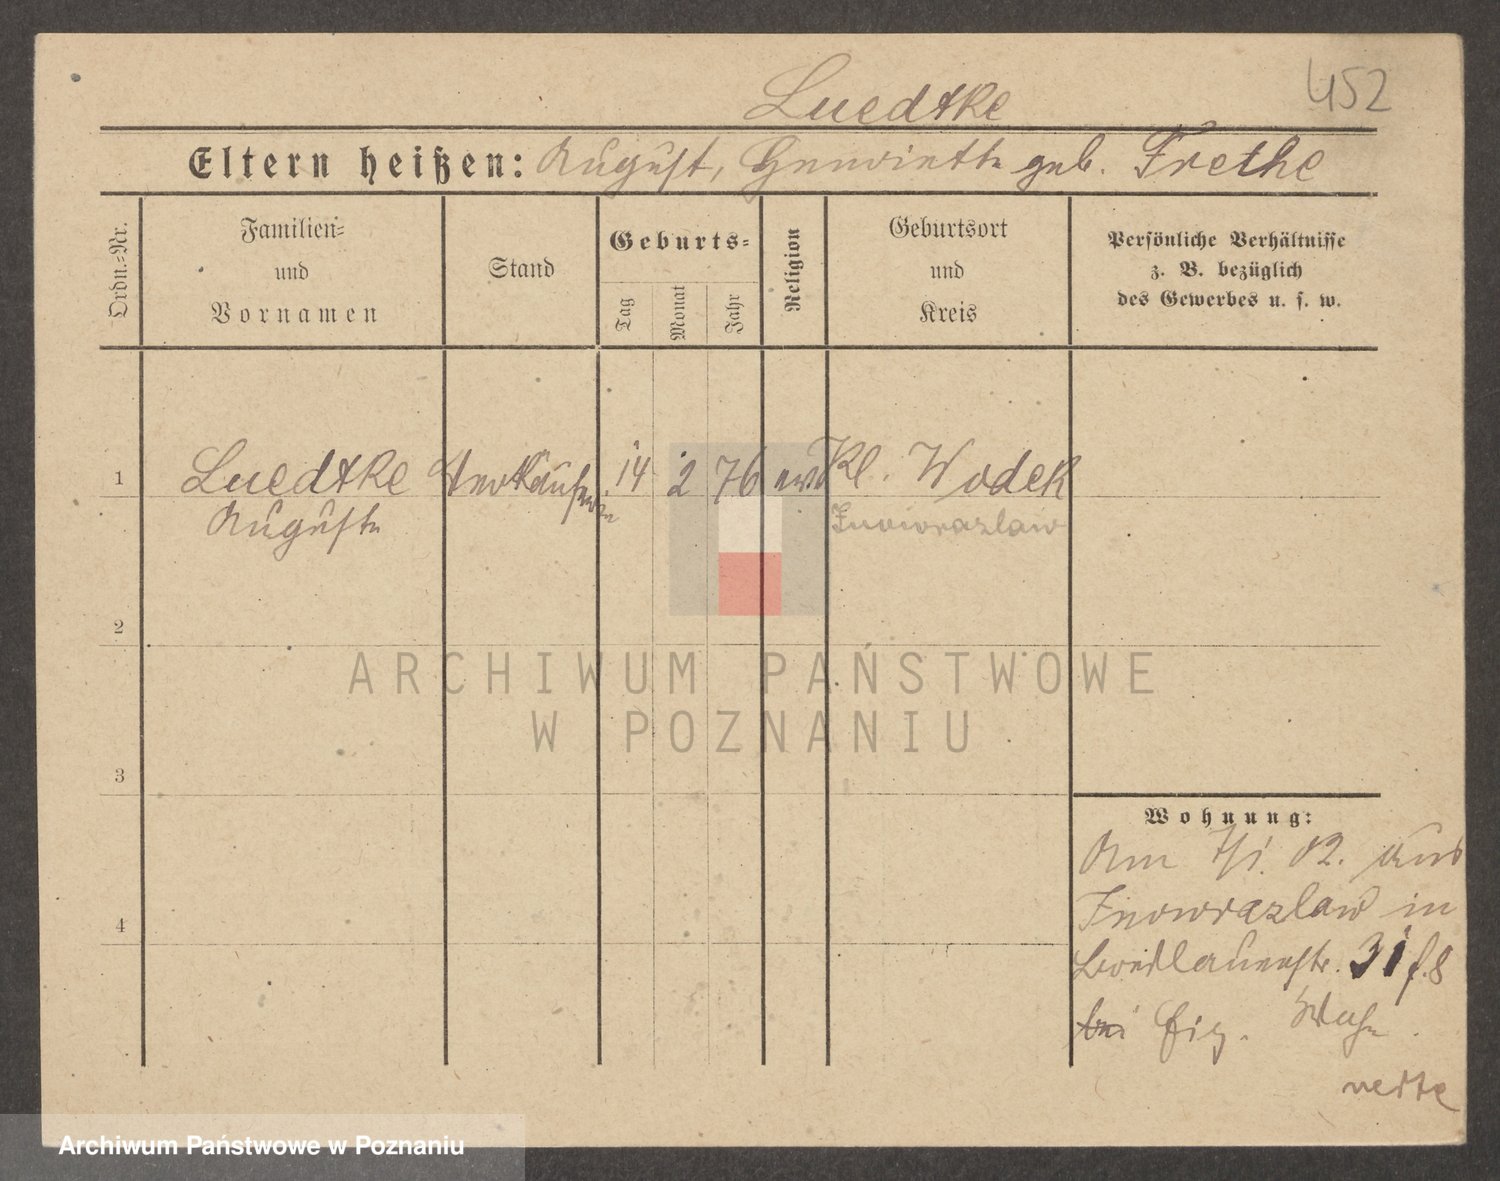 452
Luedtke
Eltern heißen: August, Henriette geb. Frethe
Ordn.=Nr.
Familien=
und
Vornamen
Stand
Geburts=
Tag
Monat
Jahr
Religion
Geburtsort
und
Kreis
Persönliche Verhältnisse
z. B. bezüglich
des Gewerbes u. s. w.
1
Luedtke
Auguste
Verkäuferin
14
2
76
ev.
Kl. Wodek
Inowrazlaw
2
3
4
Wohnung:
Am 7/1. 02. aus
Inowrazlaw in
Breslauerstr. 31
bei
ARCHIWUM PAŃSTWOWE
W POZNANIU
Archiwum Państwowe w Poznaniu